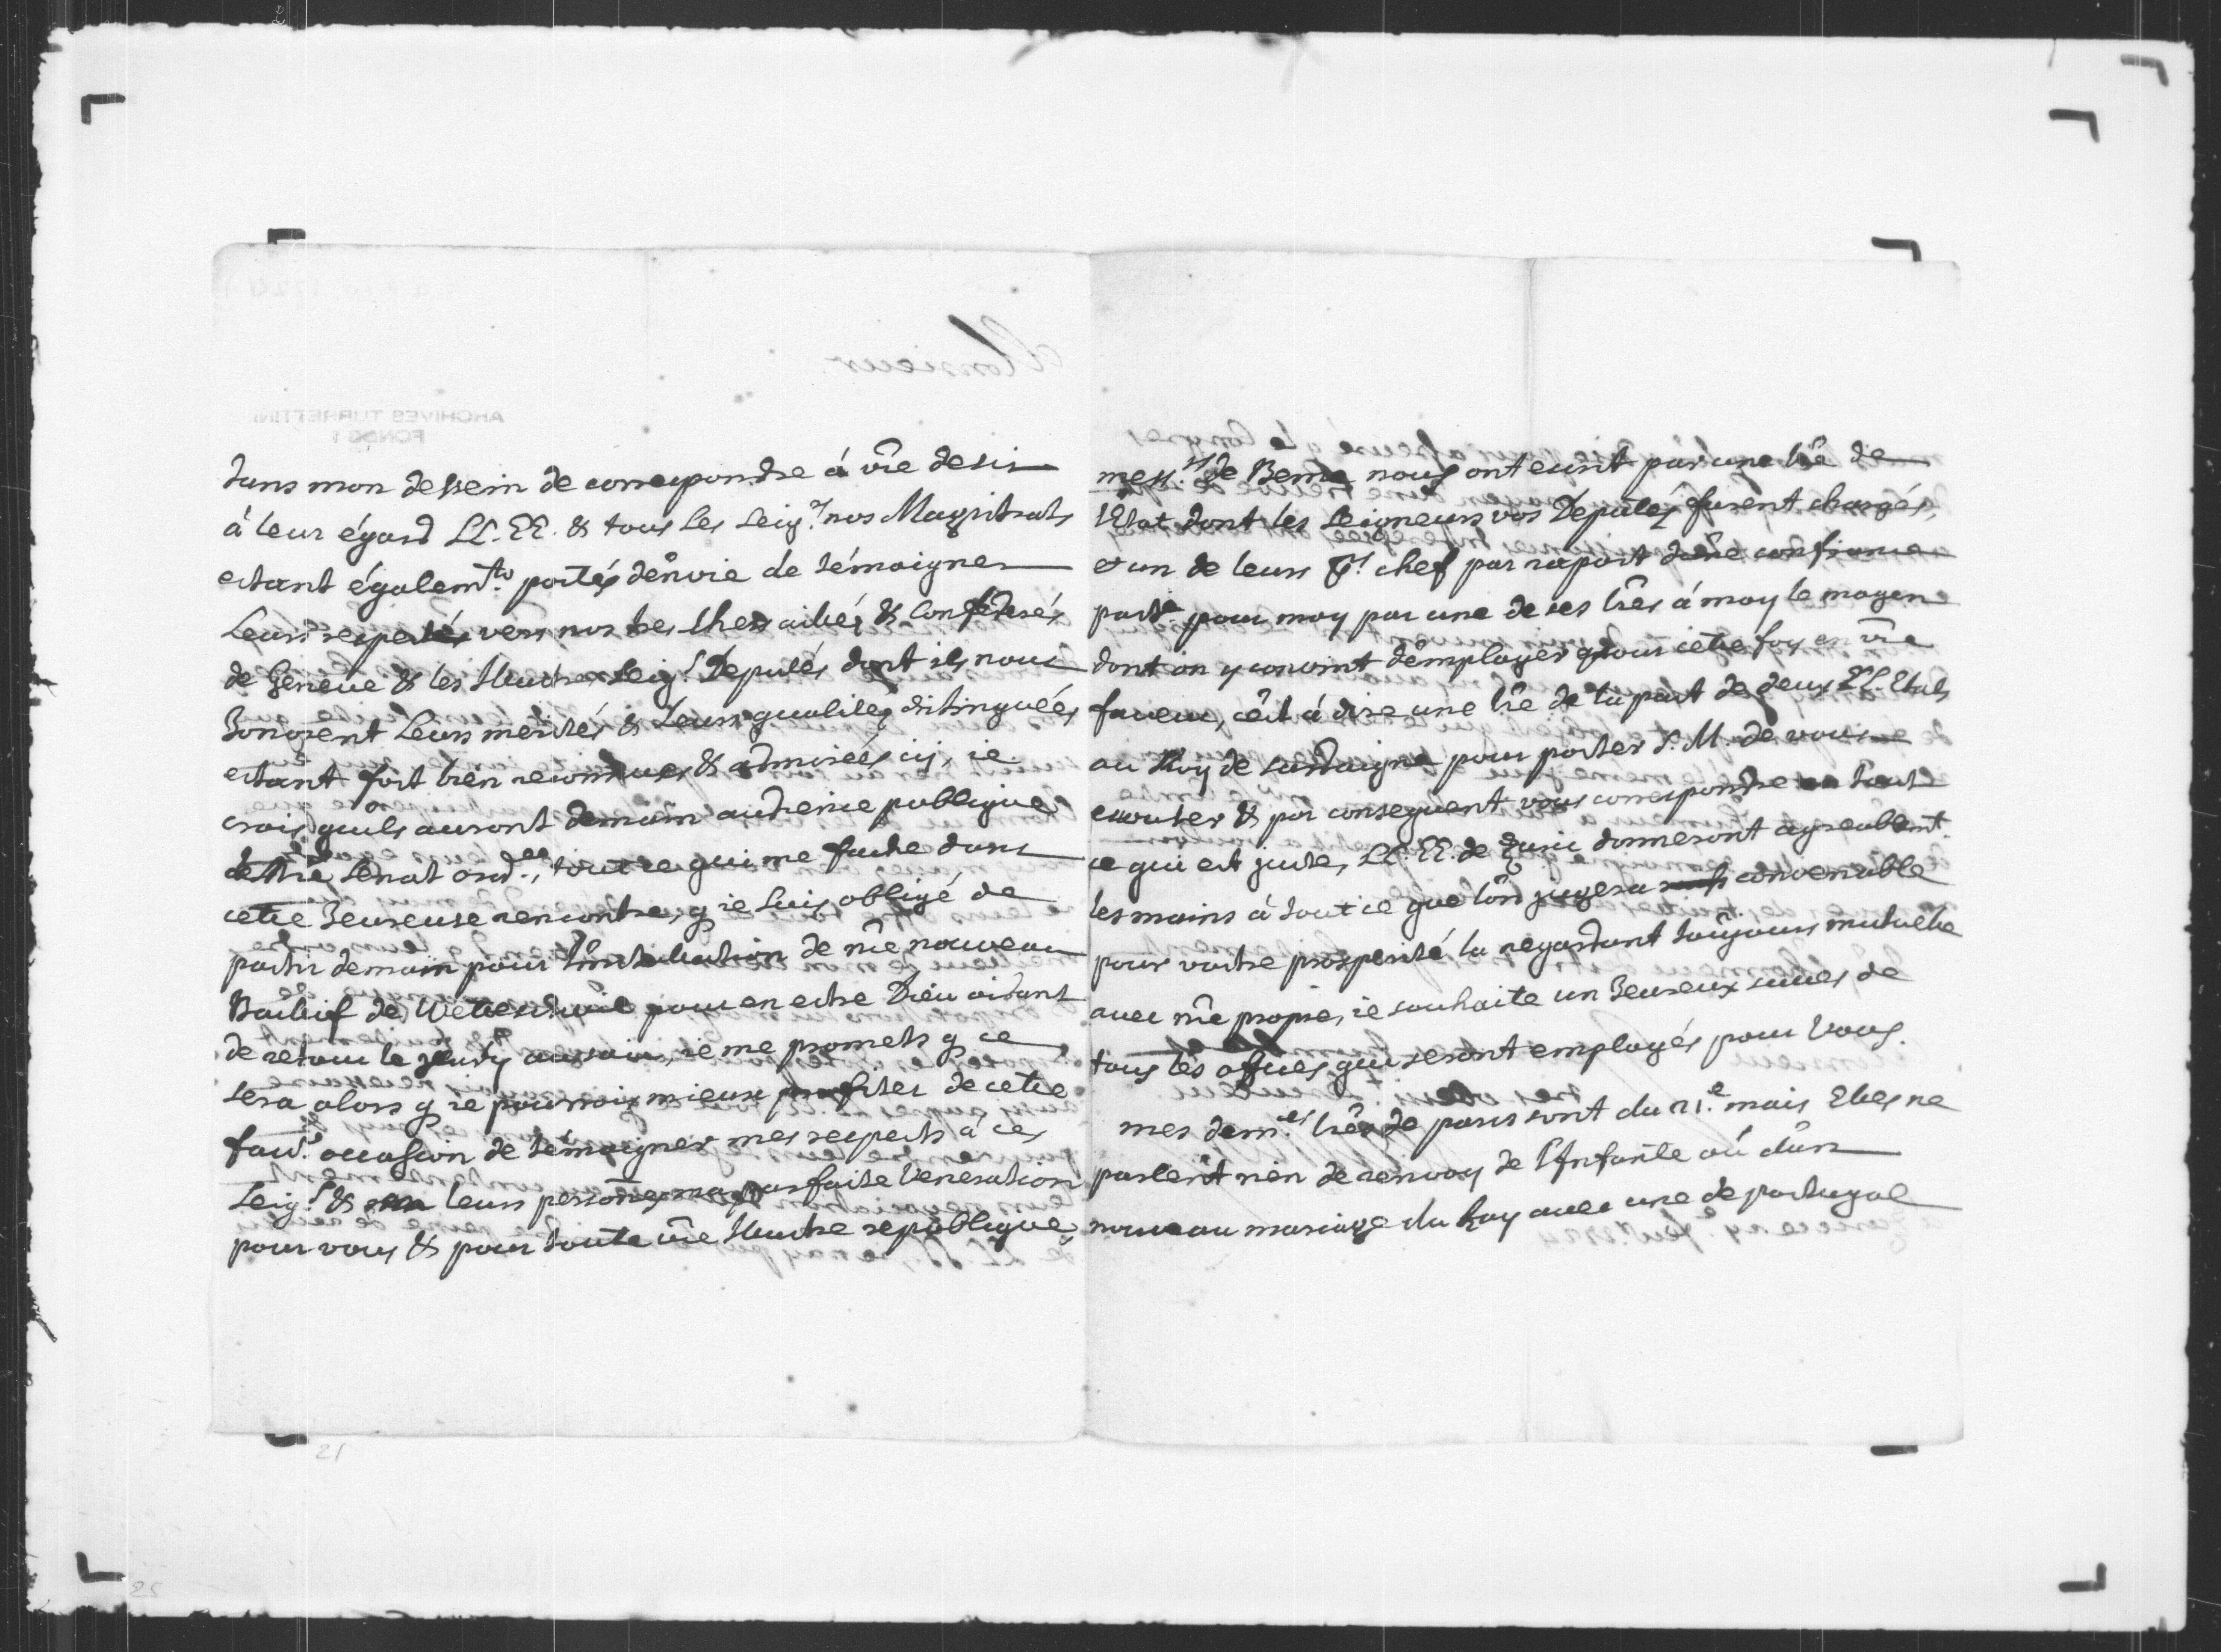 dans mon dessein de correspondre à vre desir
à leur égard LL. EE. & tous les Seigrs nos Magistrats
estant égalemt. portés d'envie de témoigner
Leurs respects vers nos tres chers alliés & Confederés
de Geneve & les Illustres Seigrs Deputés dont ils nous
honorent Leurs merites & Leurs qualites distinguées
estant fort bien reconnues & admirées icy, ie
crois qu'ils auront demain audience publique
de nre Senat ordre., tout ce qui me fache dans
cette heureuse rencontre, q ie suis obligé de
partir demain pour l'installation de nre nouveau
Baillif de Wettenschwil pour en estre Dieu aidant
de retour le Jeudy au soir, ie me promets q ce
sera alors q ie pourroy mieux profiter de cette
favle occassion de témoigner mes respects à ces
Seigrs & leurs personnes ma parfaite Veneration
pour vous & pour toute vre Illustre republique,
messrs de Berne nous ont escrit par une lre de
l'Etat dont les Seigneurs vos Deputés furent chargés,
et un de leurs chef par raport d'une confiance
partre pour moy par une de ses lres à moy le moyen
dont on y convint d'employer pour cette foy en vre
faveur, c'est à dire une lre de la part de deux LL. Etats
au Roy de Sardaigne pour porter S. M. de vous
escouter & par consequent vous correspondre en tout
ce qui est juste, LL. EE. de Zuric donneront agreablemt.
les mains à tout ce que l'on jugera convenable
pour vostre prosperité la regardant toujours mutuelle
avec nre propre, ie souhaite un heureux succes de
tous les offices qui seront employés pour vous.
mes dernres lres de paris sont du 21.e mais Elles ne
parlent rien de renvoy de l'Infante où d'un
nouveau mariage du Roy avec une de portugal
Monsieur
ARCHIVES TURRETTINI
FONDS 1
21
25